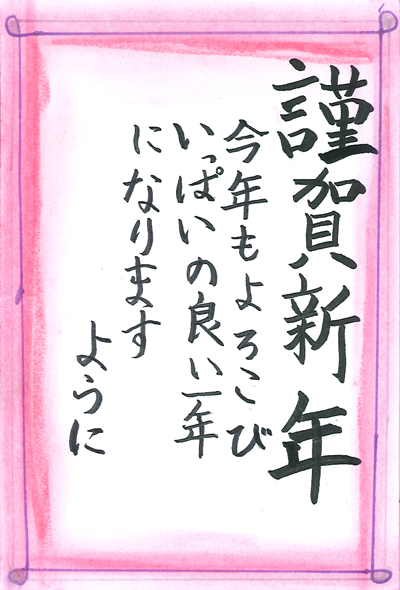 謹賀新年
今年もよろこび
いっぱいの良い一年
になります
ように